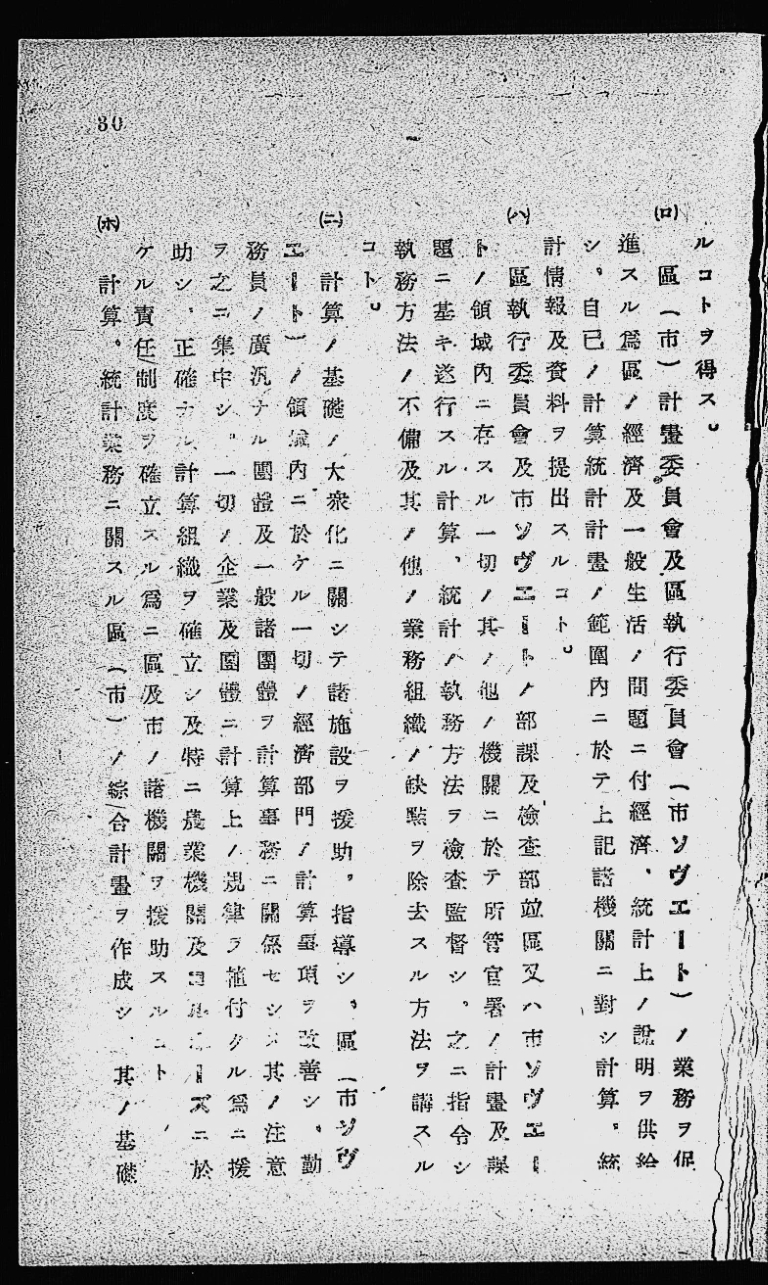 30
ルコトヲ得ス。
(ロ) 區(市)計畫委員會及區執行委員會(市ソヴエート)ノ業務ヲ促
進スル爲區ノ經濟及一般生活ノ問題ニ付經濟、統計上ノ說明ヲ供給
シ、自己ノ計算統計計畫ノ範圍內ニ於テ上記諸機關ニ對シ計算、統
計情報及資料ヲ提出スルコト。
(ハ) 區執行委員會及市ソヴエートノ部課及檢查部竝區又ハ市ソヴエー
トノ領域內ニ存スル一切ノ其ノ他ノ機關ニ於テ所管官署ノ計畫及課
題ニ基キ遂行スル計算、統計ノ執務方法ヲ檢查監督シ、之ニ指令シ
執務方法ノ不備及其ノ他ノ業務組織ノ缺點ヲ除去スル方法ヲ講スル
コト。
(ニ) 計算ノ基礎ノ大衆化ニ關シテ諸施設ヲ援助、指導シ、區(市ソヴ
エート)ノ領域內ニ於ケル一切ノ經濟部門ノ計算事項ヲ改善シ、勤
務員ノ廣汎ナル團體及一般諸團體ヲ計算事務ニ關係セシメ其ノ注意
ヲ之ニ集中シ、一切ノ企業及團體ニ計算上ノ規律ヲ植付クル爲ニ援
助シ、正確ナル計算組織ヲ確立シ及特ニ農業機關及コルホーズニ於
ケル責任制度ヲ確立スル爲ニ區及市ノ諸機關ヲ援助スルコト、
(ホ) 計算、統計業務ニ關スル區(市)ノ綜合計畫ヲ作成シ、其ノ基礎